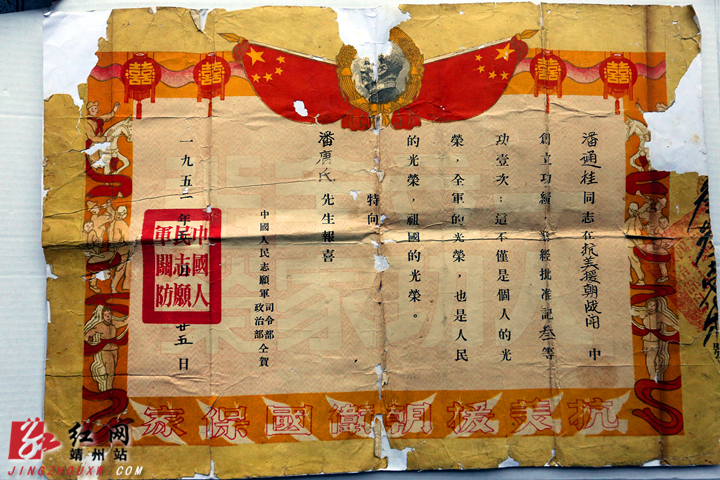 潘通桂同志在抗美援朝战鬥中
創立功績，業經批准記叁等
功壹次：這不僅是個人的光
榮，全軍的光榮，也是人民
的光榮，祖國的光榮。
特向
潘唐氏先生報喜
中國人民志願軍司令部政治部仝賀
一九五二年
廿五日
中國人民志願軍關防
抗美援朝衛國保家
红网
靖州站
JINGZHOUXW.COM